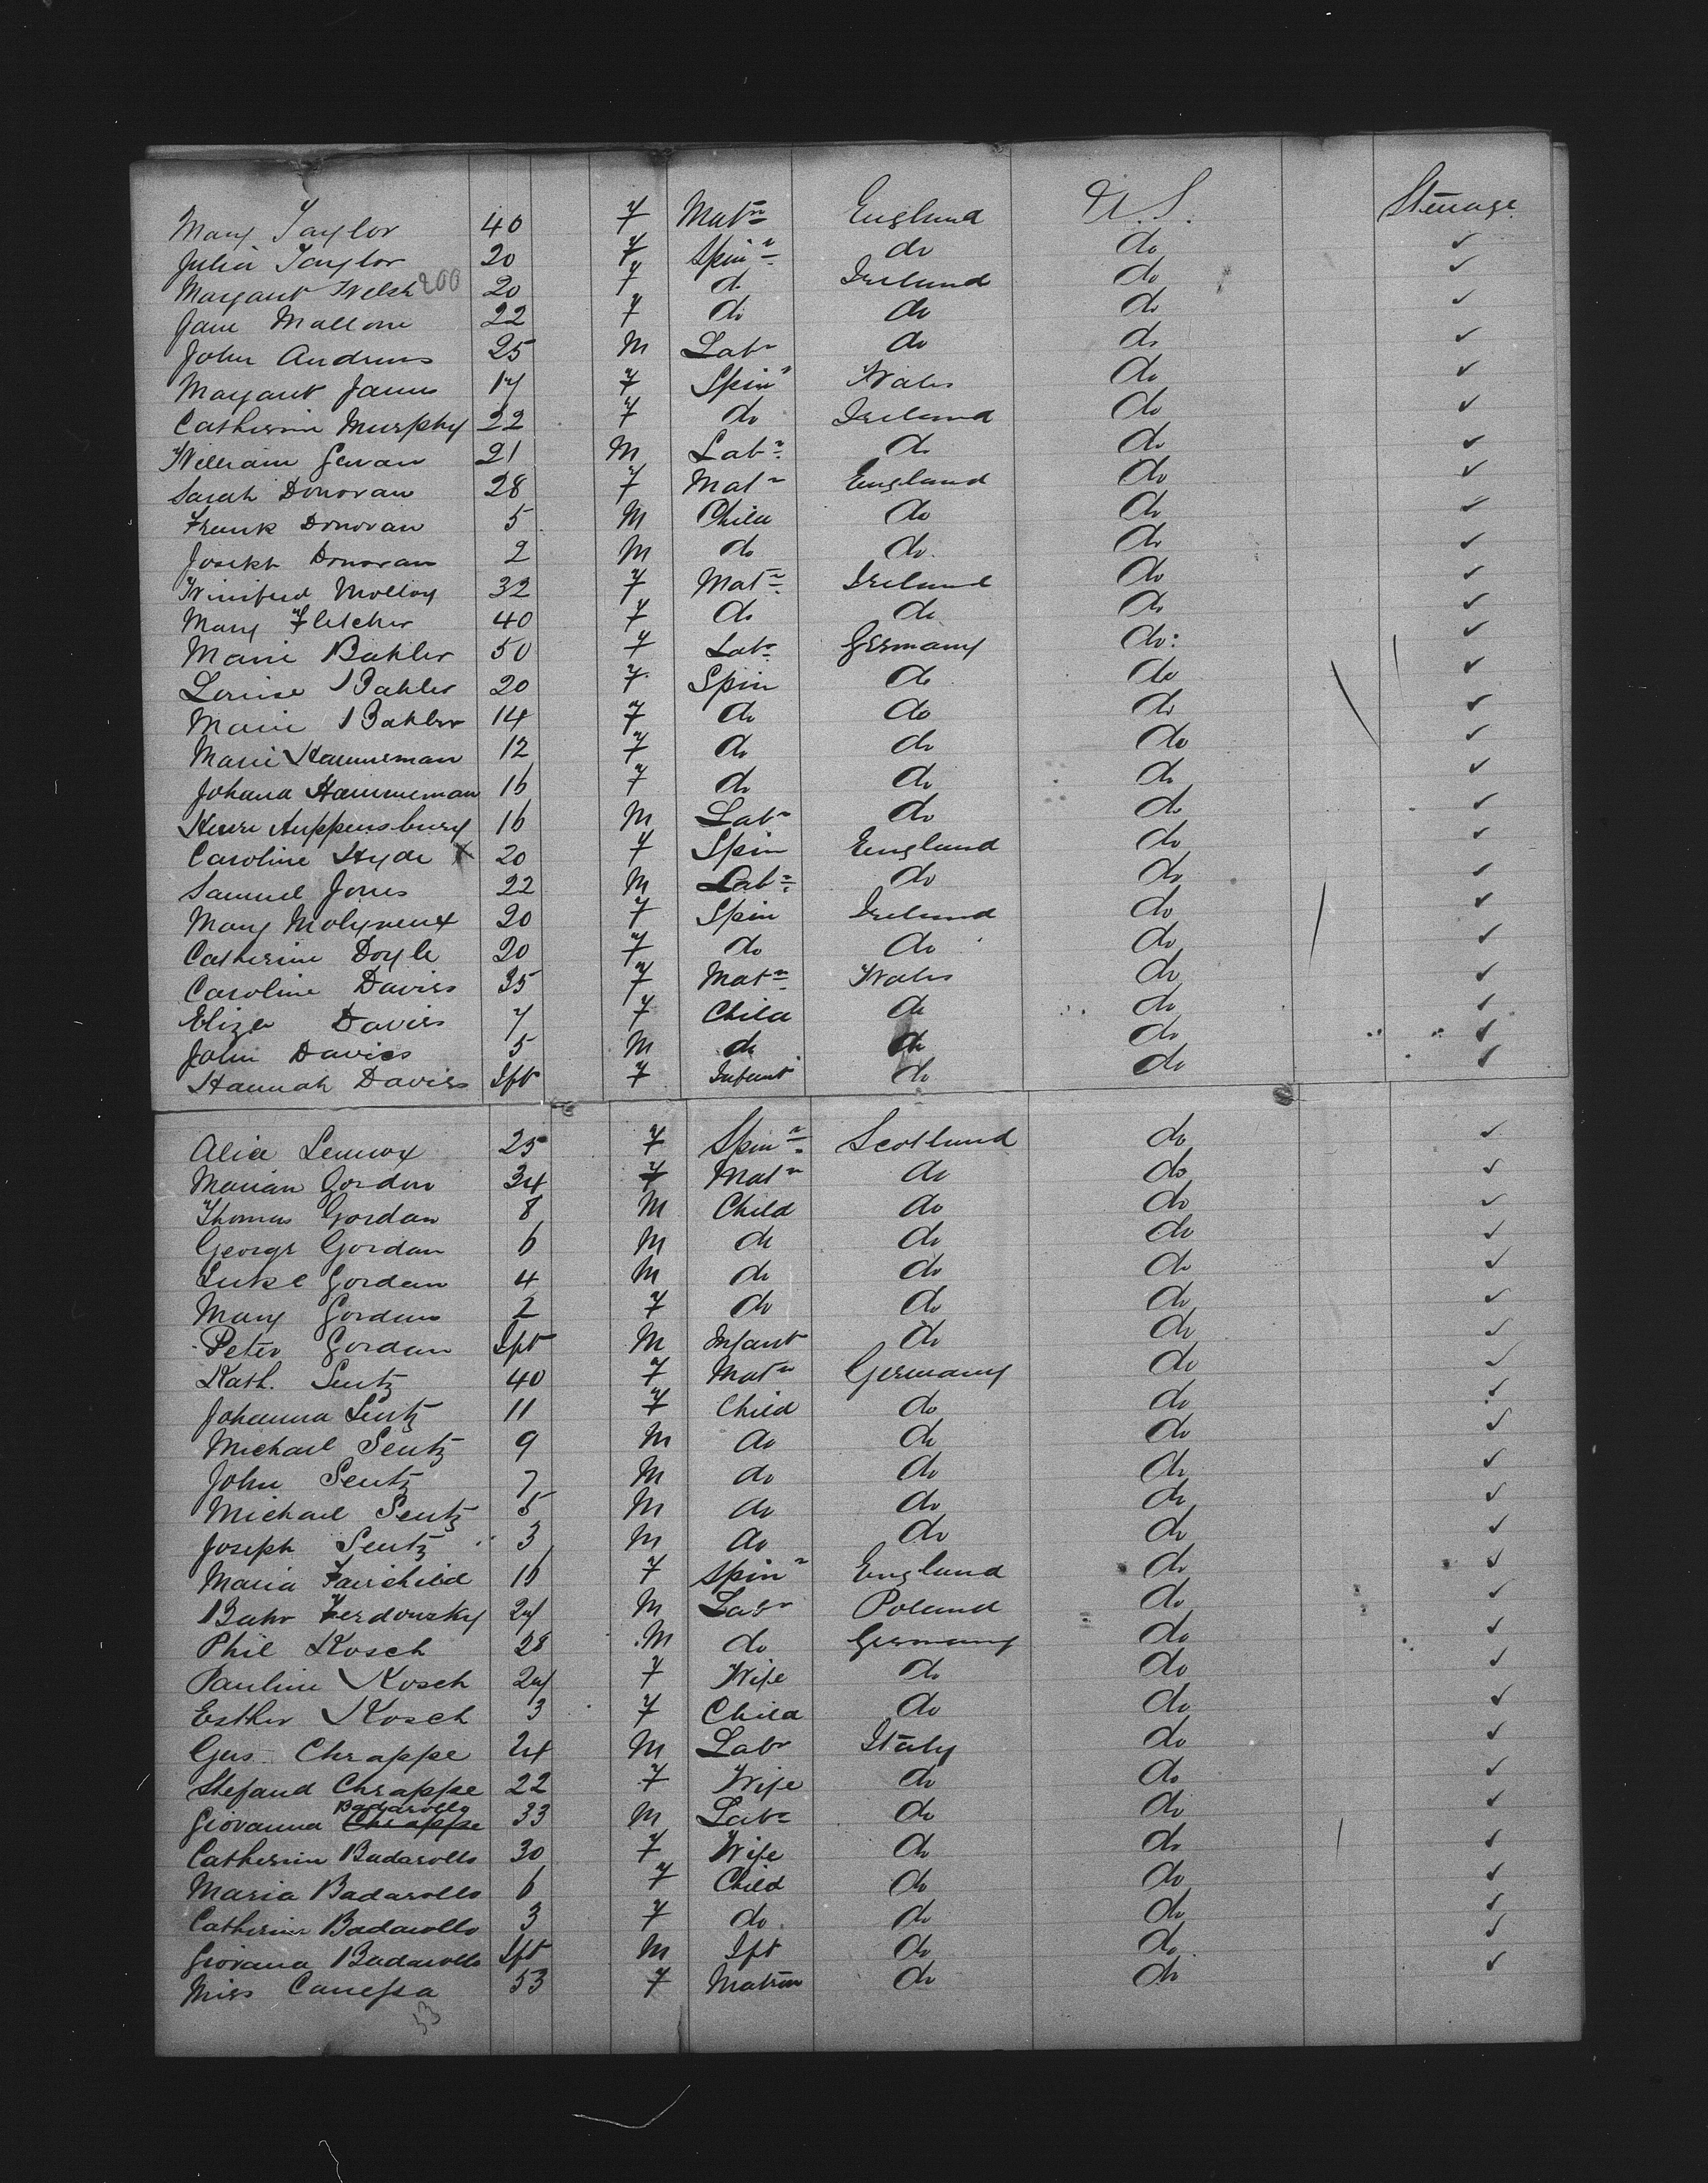 Mary Taylor 40 F Matn England U.S. Steerage
Julia Taylor 20 F Spinr do do ✓
Margaret Welsh 200 20 F do Ireland do ✓
Jane Mallone 22 F do do do ✓
John Andrews 25 M Labr do do ✓
Margaret James 17 F Spinr Wales do ✓
Catherine Murphy 22 F do Ireland do ✓
William 21 M Labr do do ✓
Sarah Donovan 28 F Matn England do ✓
Frank Donovan 5 M Child do do ✓
Joseph Donovan 2 M do do do ✓
Winifred Molloy 32 F Matn Ireland do ✓
Mary Fletcher 40 F do do do ✓
Marie Bahler 50 F Labr Germany do ✓
Louise Bahler 20 F Spin do do ✓
Marie Bahler 14 F do do do ✓
Marie Hanneman 12 F do do do ✓
Johana Hanneman 16 F do do do ✓
16 M Labr do do ✓
Caroline Hyde X 20 F Spin England do ✓
Samuel Jones 22 M Labr do do ✓
Mary Molyneux 20 F Spin Ireland do ✓
Catherine Doyle 20 F do do do ✓
Caroline Davies 35 F Matn Wales do ✓
Eliza Davies 7 F Child do do ✓
John Davies 5 M do do do ✓
Hannah Davies Ift F Infant do do ✓
Alice Lennox 25 F Spinr Scotland do ✓
Marian Gordon 34 F Matn do do ✓
Thomas Gordan 8 M Child do do ✓
George Gordan 6 M do do do ✓
Luke Gordan 4 M do do do ✓
Mary Gordan 2 F do do do ✓
Peter Gordan Ift M Infant do do ✓
Kath. Sentz 40 F Matn Germany do ✓
Johanna Sentz 11 F Child do do ✓
Michael Sentz 9 M do do do ✓
John Sentz 7 M do do do ✓
Michael Sentz 5 M do do do ✓
Joseph Sentz 3 M do do do ✓
Maria Fairchild 16 F Spinr England do ✓
M Labr Poland do ✓
Phil Kosch 28 M do Germany do ✓
Pauline Kosch 24 F Wife do do ✓
Esther Kosch 3 F Child do do ✓
Gus Chrappe 24 M Labr Italy do ✓
Stefand Chrappe 22 F Wife do do ✓
Badarollo
Giovanna Chrappe 33 M Labr do do ✓
Catherine Badarollo 30 F Wife do do ✓
Maria Badarollo 6 F Child do do ✓
Catherine Badarollo 3 F do do do ✓
Giovana Badarollo Ift M Ift do do ✓
Miss Canessa 53 F Matron do do ✓
53